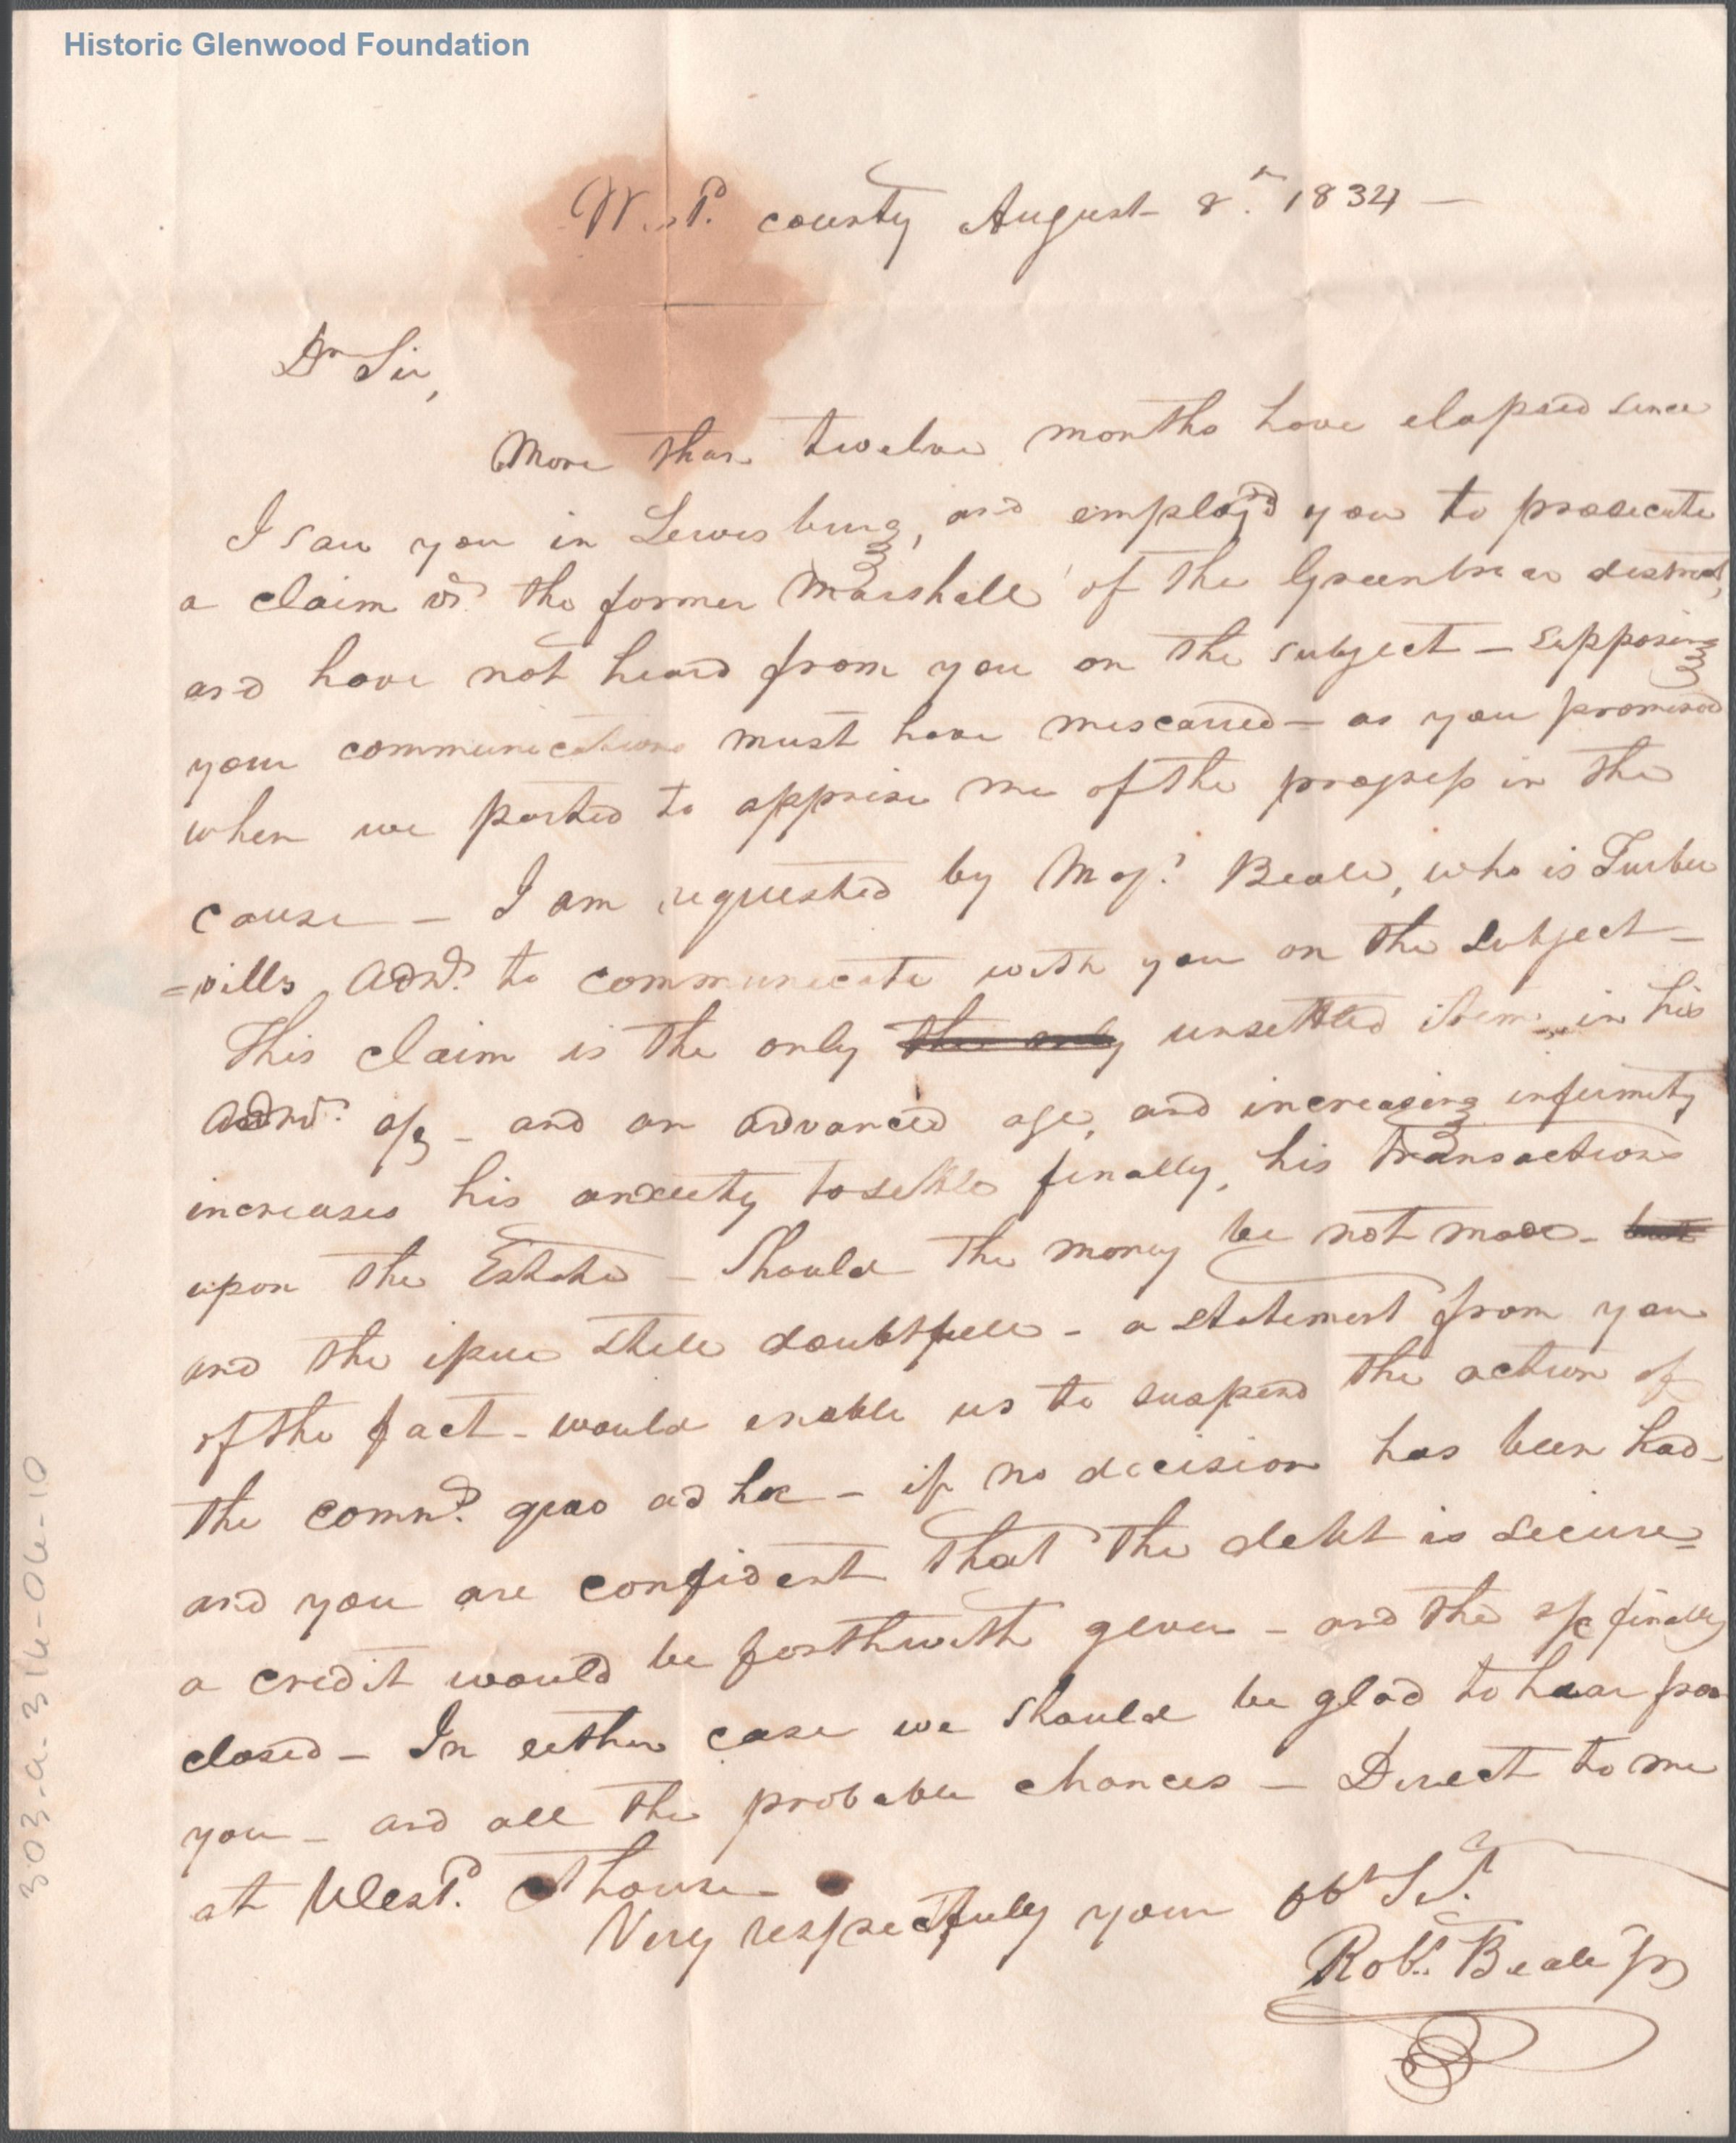 Historic Glenwood Foundation
West.d county August 8.th 1834 —
Dr Sir,
More than twelve months have elapsed since
I saw you in Lewisburg, and employ'd you to prosecute
a claim vs. the former Marshall of the Greenbrier district,
and have not heard from you on the subject — supposing
your communications must have miscarried — as you promised
when we parted to apprise me of the progress in the
cause — I am requested by Maj.r Beale, who is Turber
=vills Adm.r to communicate with you on the subject —
This claim is the only the only unsettled item in his
Adm.r a/c — and an advanced age, and increasing infirmity
increases his anxiety to settle finally, his transactions
upon the Estate — Should the money be not made — but
and the issue still doubtfull — a statement from you
of the fact — would enable us to suspend the action of
the comm.r quo ad hoc — if no decision has been had —
and you are confident that the debt is secure =
a credit would be forthwith given — and the a/c finally
closed — In either case we should be glad to hear from
you — and all the probable chances — Direct to me
at West.d C thouse —
Very respectfully your obt Svt.
Robt. Beale Jr
303-a-316-06-10